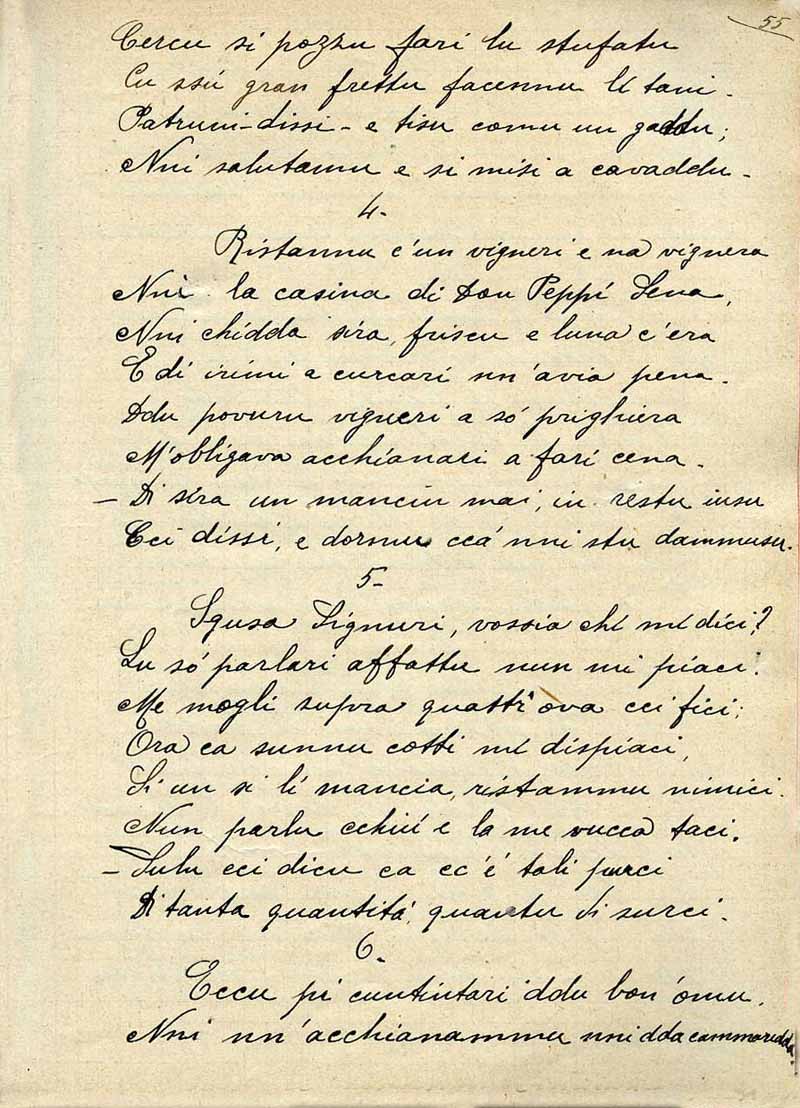 55
Cercu si pozzu fari lu stufatu
Cu ssú gran frettu facennu lí tani.
Patruni - dissi - e tisu comu un gaddu;
Nni salutamu e si misi a cavaddu.
4.
Ristannu c'un vigneri e na vignera
Nni la casina di Don Peppí Sena,
Nni chidda sira, friscu e luna c'era
E di irimi a curcari nn'avia pena.
Ddu povuru vigneri a só prighiera
M'obligava acchianari a fari cena.
- Di sira un manciu mai, iu restu iusu
Cci dissi, e dormu ccá nni stu dammusu.
5.
Sgusa Signuri, vossia chi mí dici?
Lu só parlari affattu nun mi piaci.
Me mogli supra quattr'ova cci fici;
Ora ca sunnu cotti mí dispiaci,
Si un si li mancia, ristammu nimici.
Nun parlu cchiú e la me vucca taci.
- Sulu cci dicu ca cc'é tali purci
Di tanta quantitá, quantu di surci.
6.
Eccu pi cuntintari ddu bon'omu,
Nni nn'acchianammu nni dda cammaredda.